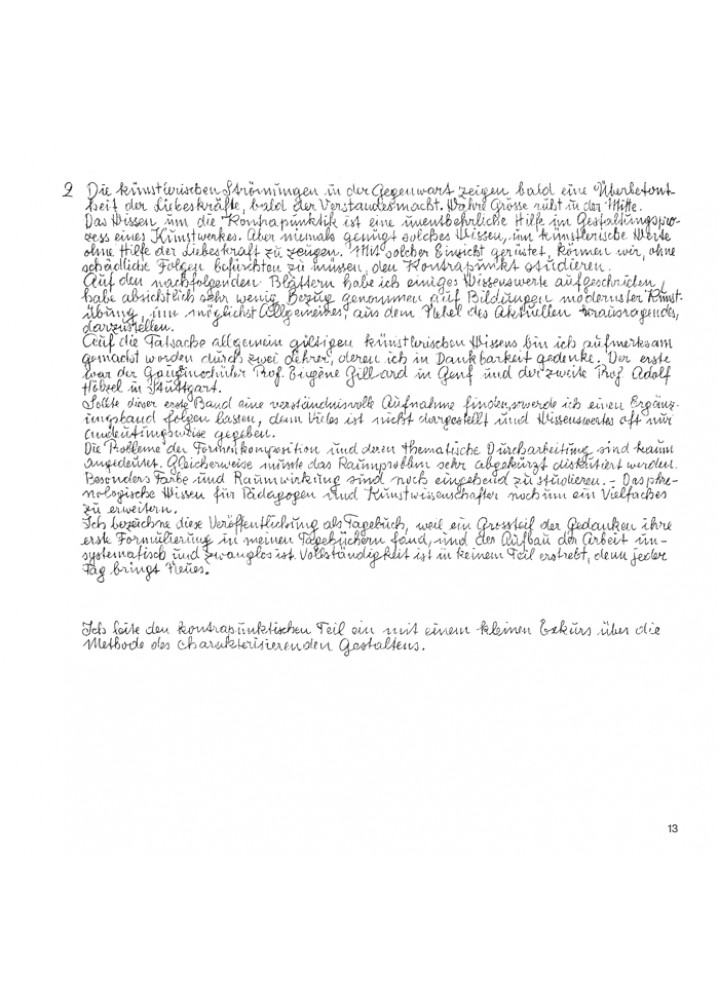 2 Die künstlerischen Strömungen in der Gegenwart zeigen bald eine Überbetont-
heit der Liebeskräfte, bald der Verstandesmacht. Wahre Grösse ruht in der Mitte.
Das Wissen um die Kontrapunktik ist eine unentbehrliche Hilfe im Gestaltungspro-
zess eines Kunstwerkes. Aber niemals genügt solches Wissen, um künstlerische Werte
ohne Hilfe der Liebeskraft zu zeugen. Mit solcher Einsicht gerüstet, können wir, ohne
schädliche Folgen befürchten zu müssen, den Kontrapunkt studieren.
Auf den nachfolgenden Blättern habe ich einiges Wissenswerte aufgeschrieben,
habe absichtlich sehr wenig Bezug genommen auf Bildungen modernster Kunst-
übung, um möglichst Allgemeines, aus dem Nebel des Aktuellen herausragendes,
darzustellen.
Auf die Tatsache allgemein giltigen künstlerischen Wissens bin ich aufmerksam
gemacht worden durch zwei Lehrer, deren ich in Dankbarkeit gedenke. Der erste
war der Prof. Eugène Gilliard in Genf und der zweite Prof. Adolf
Hölzel in Stuttgart.
Sollte dieser erste Band eine verständnisvolle Aufnahme finden, werde ich einen Ergänz-
ungsband folgen lassen, denn Vieles ist nicht dargestellt und Wissenswertes oft nur
andeutungsweise gegeben.
Die Probleme der Formenkomposition und deren thematische Durcharbeitung sind kaum
angedeutet. Gleicherweise müsste das Raumproblem sehr abgekürzt diskutiert werden.
Besonders Farbe und Raumwirkung sind noch eingehend zu studieren. - Das phä-
nologische Wissen für Pädagogen und Kunstwissenschafter noch um ein Vielfaches
zu erweitern.
Ich bezeichne diese Veröffentlichung als Tagebuch, weil ein Grossteil der Gedanken ihre
erste Formulierung in meinen Tagebüchern fand, und der Aufbau der Arbeit un-
systematisch und zwanglos ist. Vollständigkeit ist in keinem Teil erstrebt, denn jeder
Tag bringt Neues.
Ich leite den kontrapunktischen Teil ein mit einem kleinen Exkurs über die
Methode des charakterisierenden Gestaltens.
13